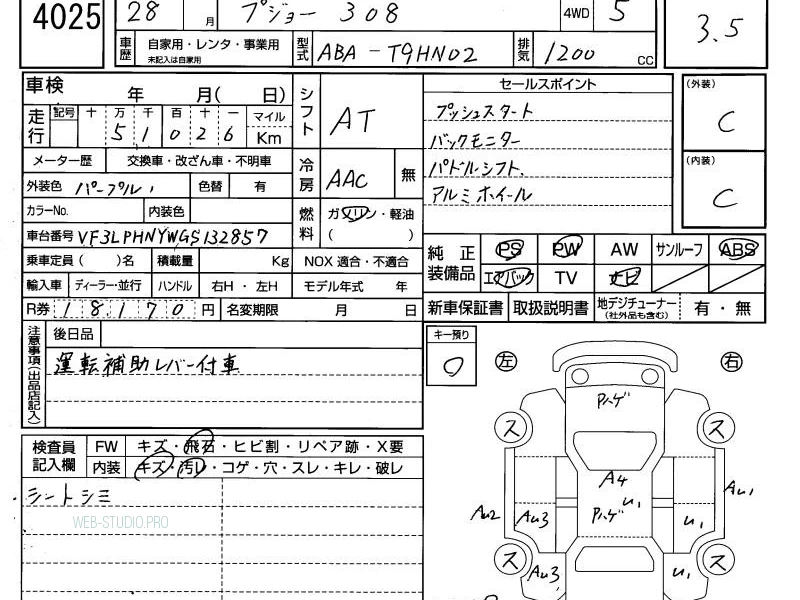 4025 28 月 プジョー 308 4WD 5 3.5
車歴 自家用・レンタ・事業用 未記入は自家用 型式 ABA-T9HN02 排気 1200 CC
車検 年 月( 日) シフト AT セールスポイント (外装) C
走行 記号 十 万 千 百 十 一 マイル Km
5 1 0 2 6
プッシュスタート
バックモニター
パドルシフト.
アルミホイール
メーター歴 交換車・改ざん車・不明車 冷房 AAC 無 (内装) C
外装色 パープル 色替 有
カラーNo. 内装色 燃料 ガソリン・軽油 ( )
車台番号 VF3LPHNYWGS132857
純正装備品 PS PW AW サンルーフ ABS
エアバック TV ナビ
乗車定員( )名 積載量 Kg NOX 適合・不適合
輸入車 ディーラー・並行 ハンドル 右H・左H モデル年式 年
R券 18,170 円 名変期限 月 日
新車保証書 取扱説明書 地デジチューナー (社外品も含む) 有・無
注意事項(出品店記入) 後日品
運転補助レバー付車
キー預り 0 左 右
検査員記入欄 FW キズ・飛石・ヒビ割・リペア跡・X要
内装 キズ・汚レ・コゲ・穴・スレ・キレ・破レ
シートシミ
WEB-STUDIO.PRO
Pハゲ
ス ス
A4
U1
AU2 AU3 Pハゲ U1 AU1
ス ス
AU3 U1